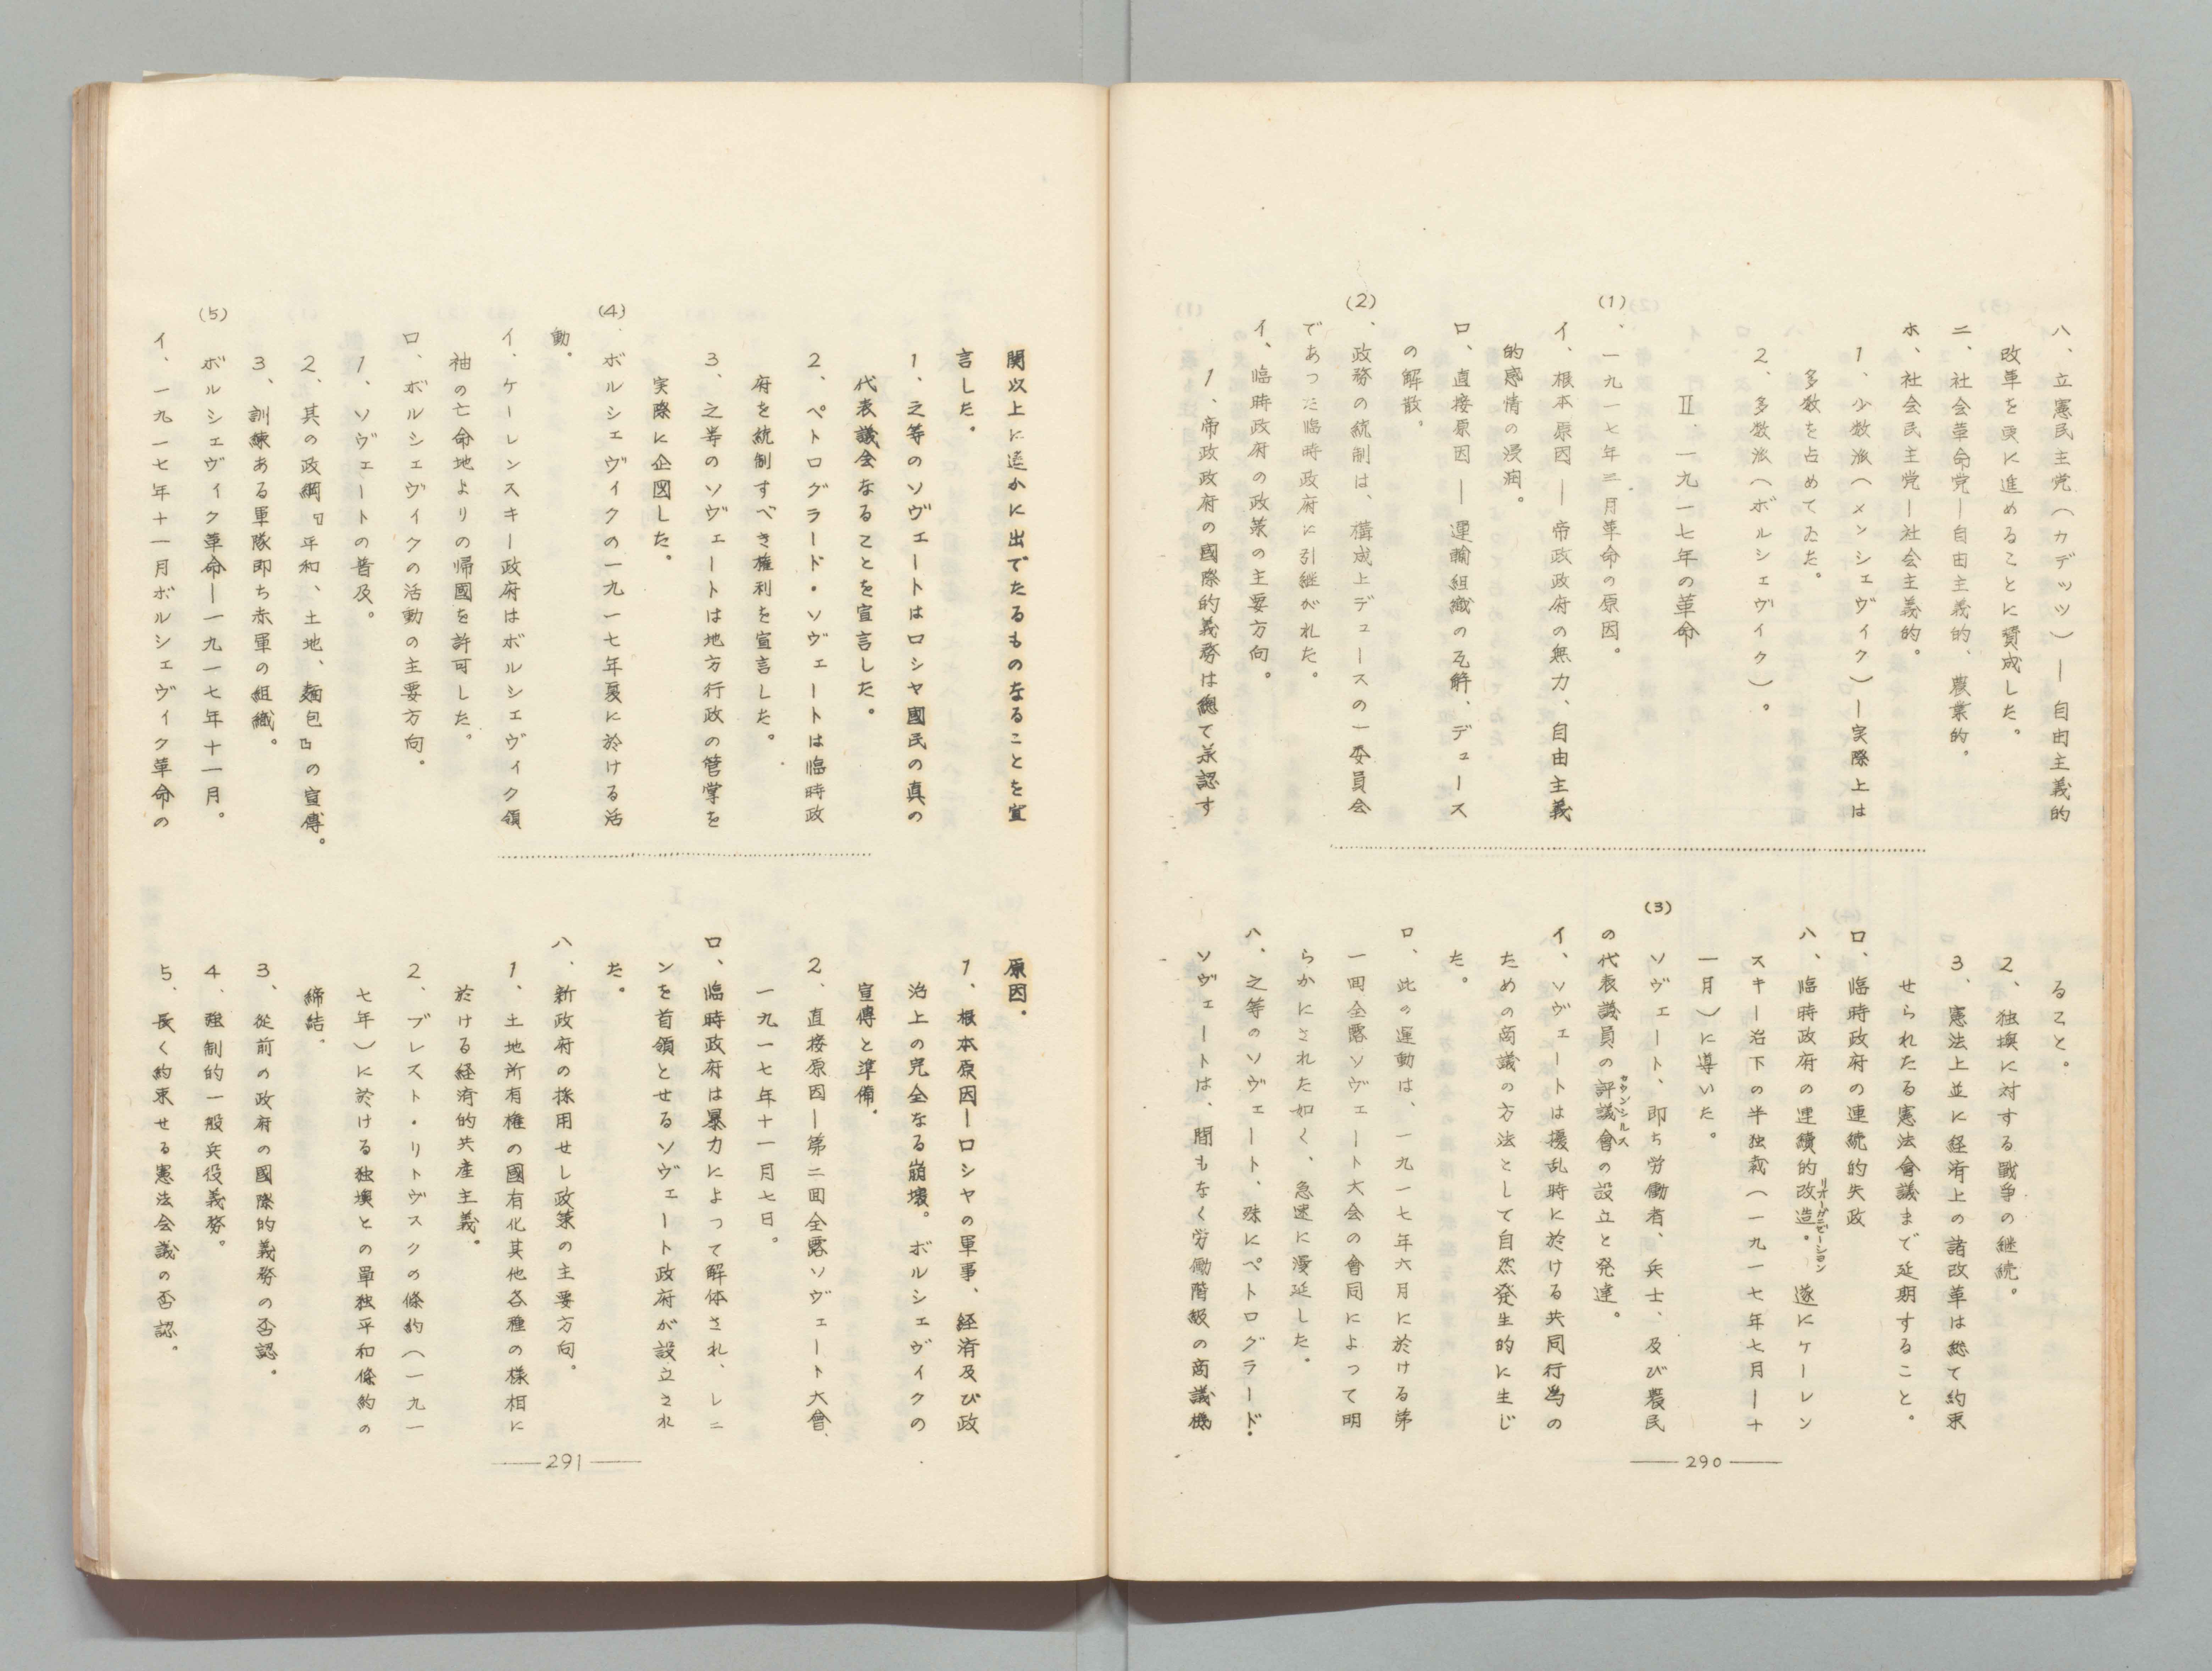 ハ、立憲民主党(カデッツ)——自由主義的
改革を更に進めることに賛成した。
ニ、社会革命党—自由主義的、農業的。
ホ、社会民主党—社会主義的。
1、少数派(メンシェヴィク)—実際上は
多数を占めてゐた。
2、多数派(ボルシェヴィク)。
Ⅱ．一九一七年の革命
(1)、一九一七年三月革命の原因。
イ、根本原因—帝政政府の無力、自由主義
的感情の浸潤。
ロ、直接原因—運輸組織の瓦解、デュース
の解散。
(2)、政務の統制は、構成上デュースの一委員会
であった臨時政府に引継がれた。
イ、臨時政府の政策の主要方向。
1、帝政政府の國際的義務は總て承認す
ること。
2、独墺に対する戰争の継続。
3、憲法上並に経済上の諸改革は総て約束
せられたる憲法會議まで延期すること。
ロ、臨時政府の連続的失政
ハ、臨時政府の連續的改造。遂にケーレン
リオーガニゼーション
スキー治下の半独裁(一九一七年七月—十
一月)に導いた。
(3)ソヴェート、即ち労働者、兵士、及び農民
の代表議員の評議會の設立と発達。
カウンシルス
イ、ソヴェートは擾乱時に於ける共同行為の
ための商議の方法として自然発生的に生じ
た。
ロ、此の運動は、一九一七年六月に於ける第
一囘全露ソヴェート大会の會同によって明
らかにされた如く、急速に漫延した。
ハ、之等のソヴェート、殊にペトログラード・
ソヴェートは、間もなく労働階級の商議機
関以上に遥かに出でたるものなることを宣
言した。
1、之等のソヴェートはロシヤ國民の真の
代表議会なることを宣言した。
2、ペトログラード・ソヴェートは臨時政
府を統制すべき権利を宣言した。
3、之等のソヴェートは地方行政の管掌を
実際に企図した。
(4)．ボルシェヴィクの一九一七年夏に於ける活
動。
イ、ケーレンスキー政府はボルシェヴィク領
袖の亡命地よりの帰國を許可した。
ロ、ボルシェヴィクの活動の主要方向。
1、ソヴェートの普及。
2、其の政綱『平和、土地、麺包』の宣傳。
3、訓練ある軍隊即ち赤軍の組織。
(5)ボルシェヴィク革命—一九一七年十一月。
イ、一九一七年十一月ボルシェヴィク革命の
原因。
1、根本原因—ロシヤの軍事、経済及び政
治上の完全なる崩壊。ボルシェヴィクの
宣傳と準備。
2、直接原因—第二囘全露ソヴェート大會、
一九一七年十一月七日。
ロ、臨時政府は暴力によって解体され、レニ
ンを首領とせるソヴェート政府が設立され
た。
ハ、新政府の採用せし政策の主要方向。
1、土地所有権の國有化其他各種の様相に
於ける経済的共産主義。
2、ブレスト・リトヴスクの條約(一九一
七年)に於ける独墺との單独平和條約の
締結。
3、従前の政府の國際的義務の否認。
4、強制的一般兵役義務。
5、長く約束せる憲法会議の否認。
—290—
—291—